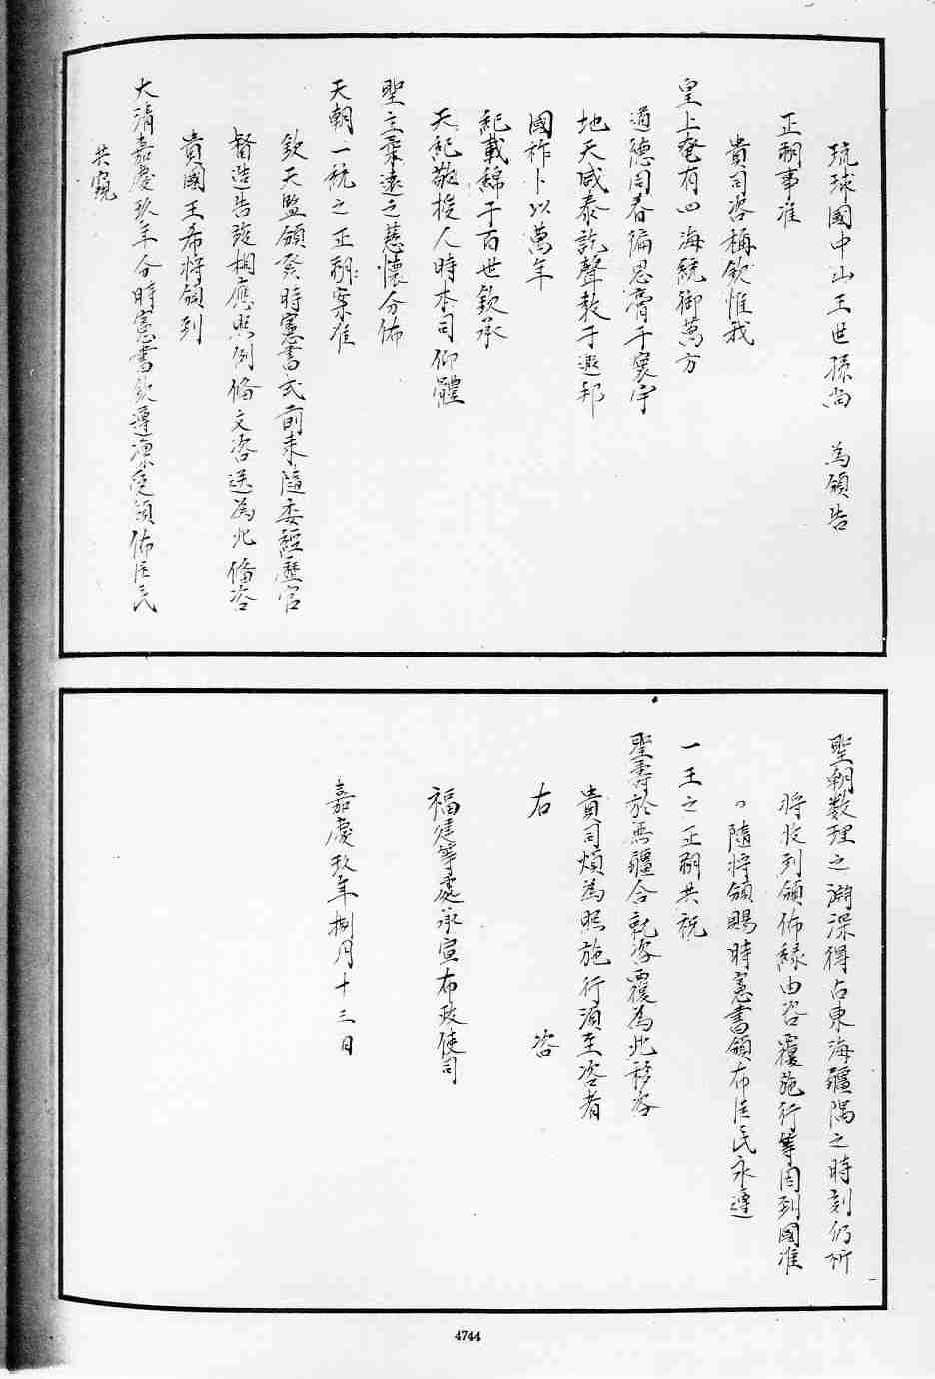 琉球國中山王世孫尚　為頒告
正朔事准
貴司咨稱欽惟我
皇上奄有四海統御萬方
道德同春徧恩膏于寰宇
地天咸泰訖聲教于遐邦
國祚卜以萬年
紀載綿于百世欽承
天紀敬授人時本司仰體
聖主柔遠之慈懷分佈
天朝一統之正朔案准
欽天監頒發時憲書式前來隨委經歷官
督造告竣相應照例備文咨送為此備咨
貴國王希將頒到
大清嘉慶玖年分時憲書欽遵漁受頒佈臣民
共窺
聖朝数理之淵深得占東海疆隅之時刻仍祈
將收到頒佈緣由咨覆施行等因到國准
隨將頒賜時憲書頒布臣民永遵
一王之正朔共祝
聖壽於無疆合就咨覆為此移咨
貴司煩為照施行須至咨者
右　咨
福建等處承宣布政使司
嘉慶玖年捌月十三日
4744